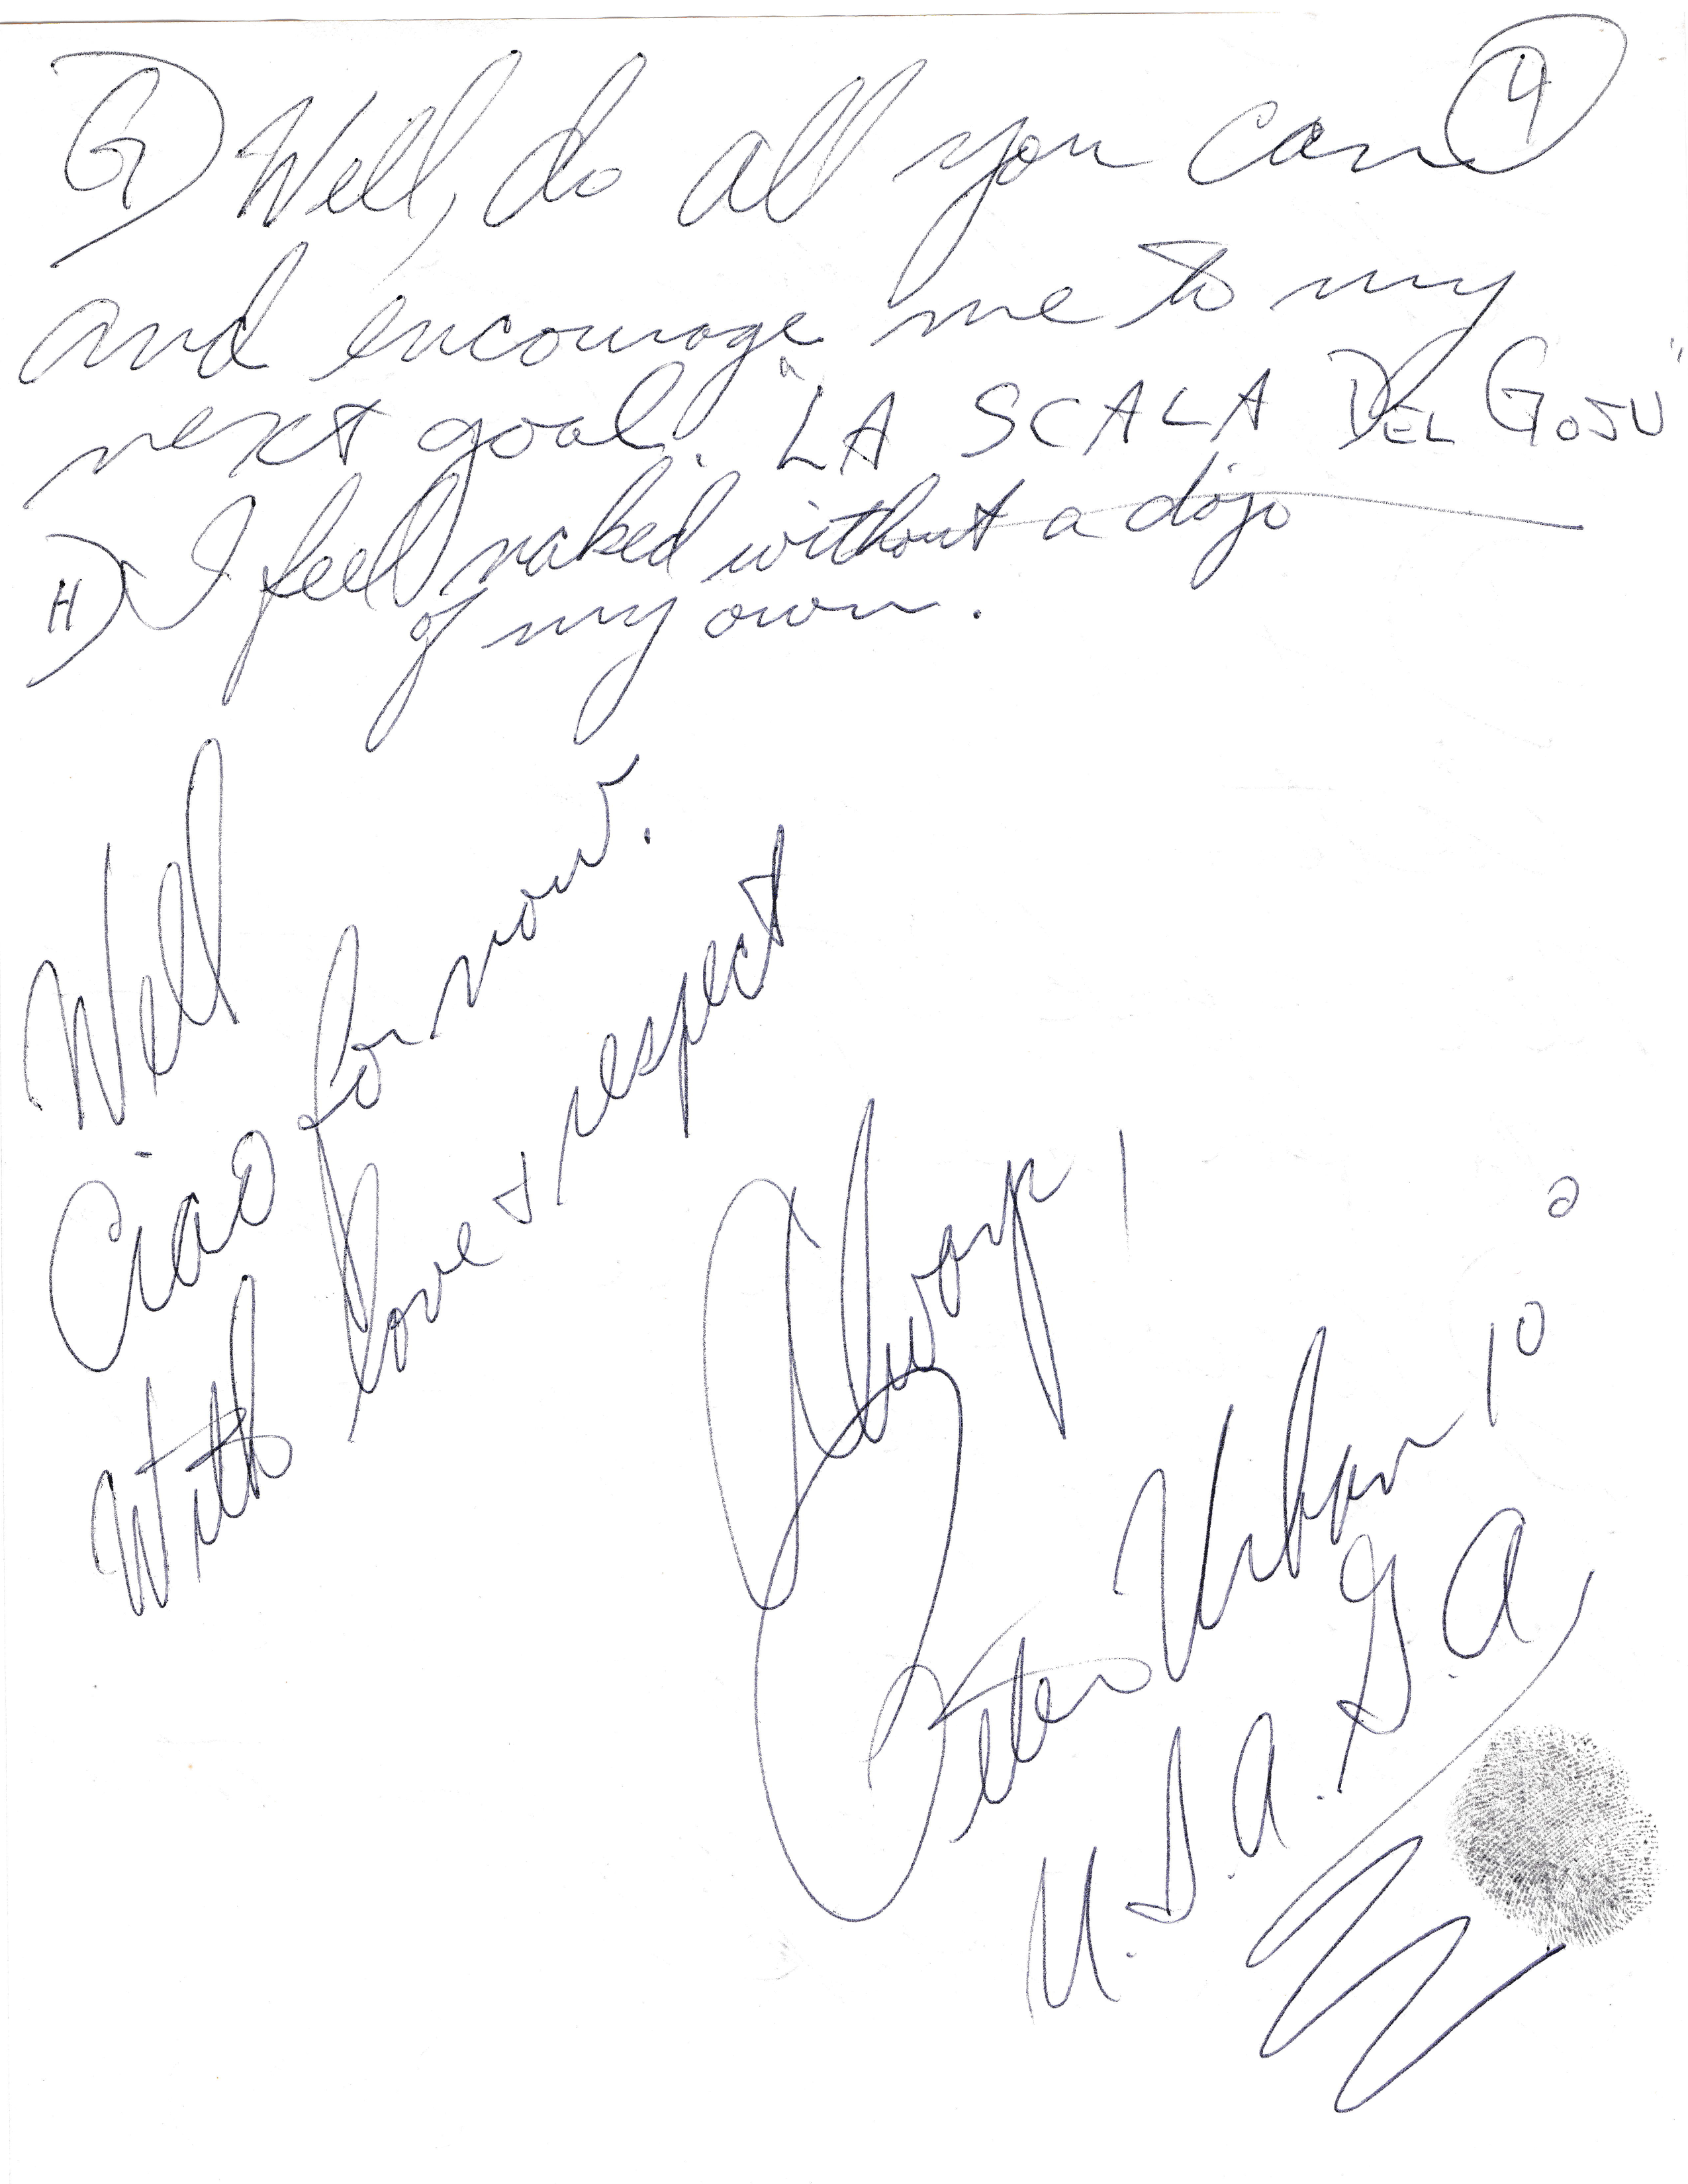 4
G) Well, do all you can
and encourage me to my
next goal. "LA SCALA DEL GOJU"
H) I feel naked without a dojo
of my own.
Well
Ciao for now.
With love & respect
Always!
Peter Urban 10°
U.S.A. G.A